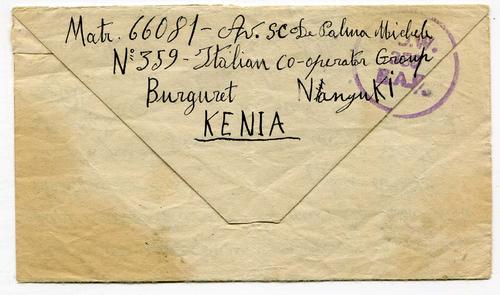 Matr. 66081 - Av. sc. De Palma Michele
N° 359 - Italian Co-operator Group
Burguret Nanyuki
KENIA